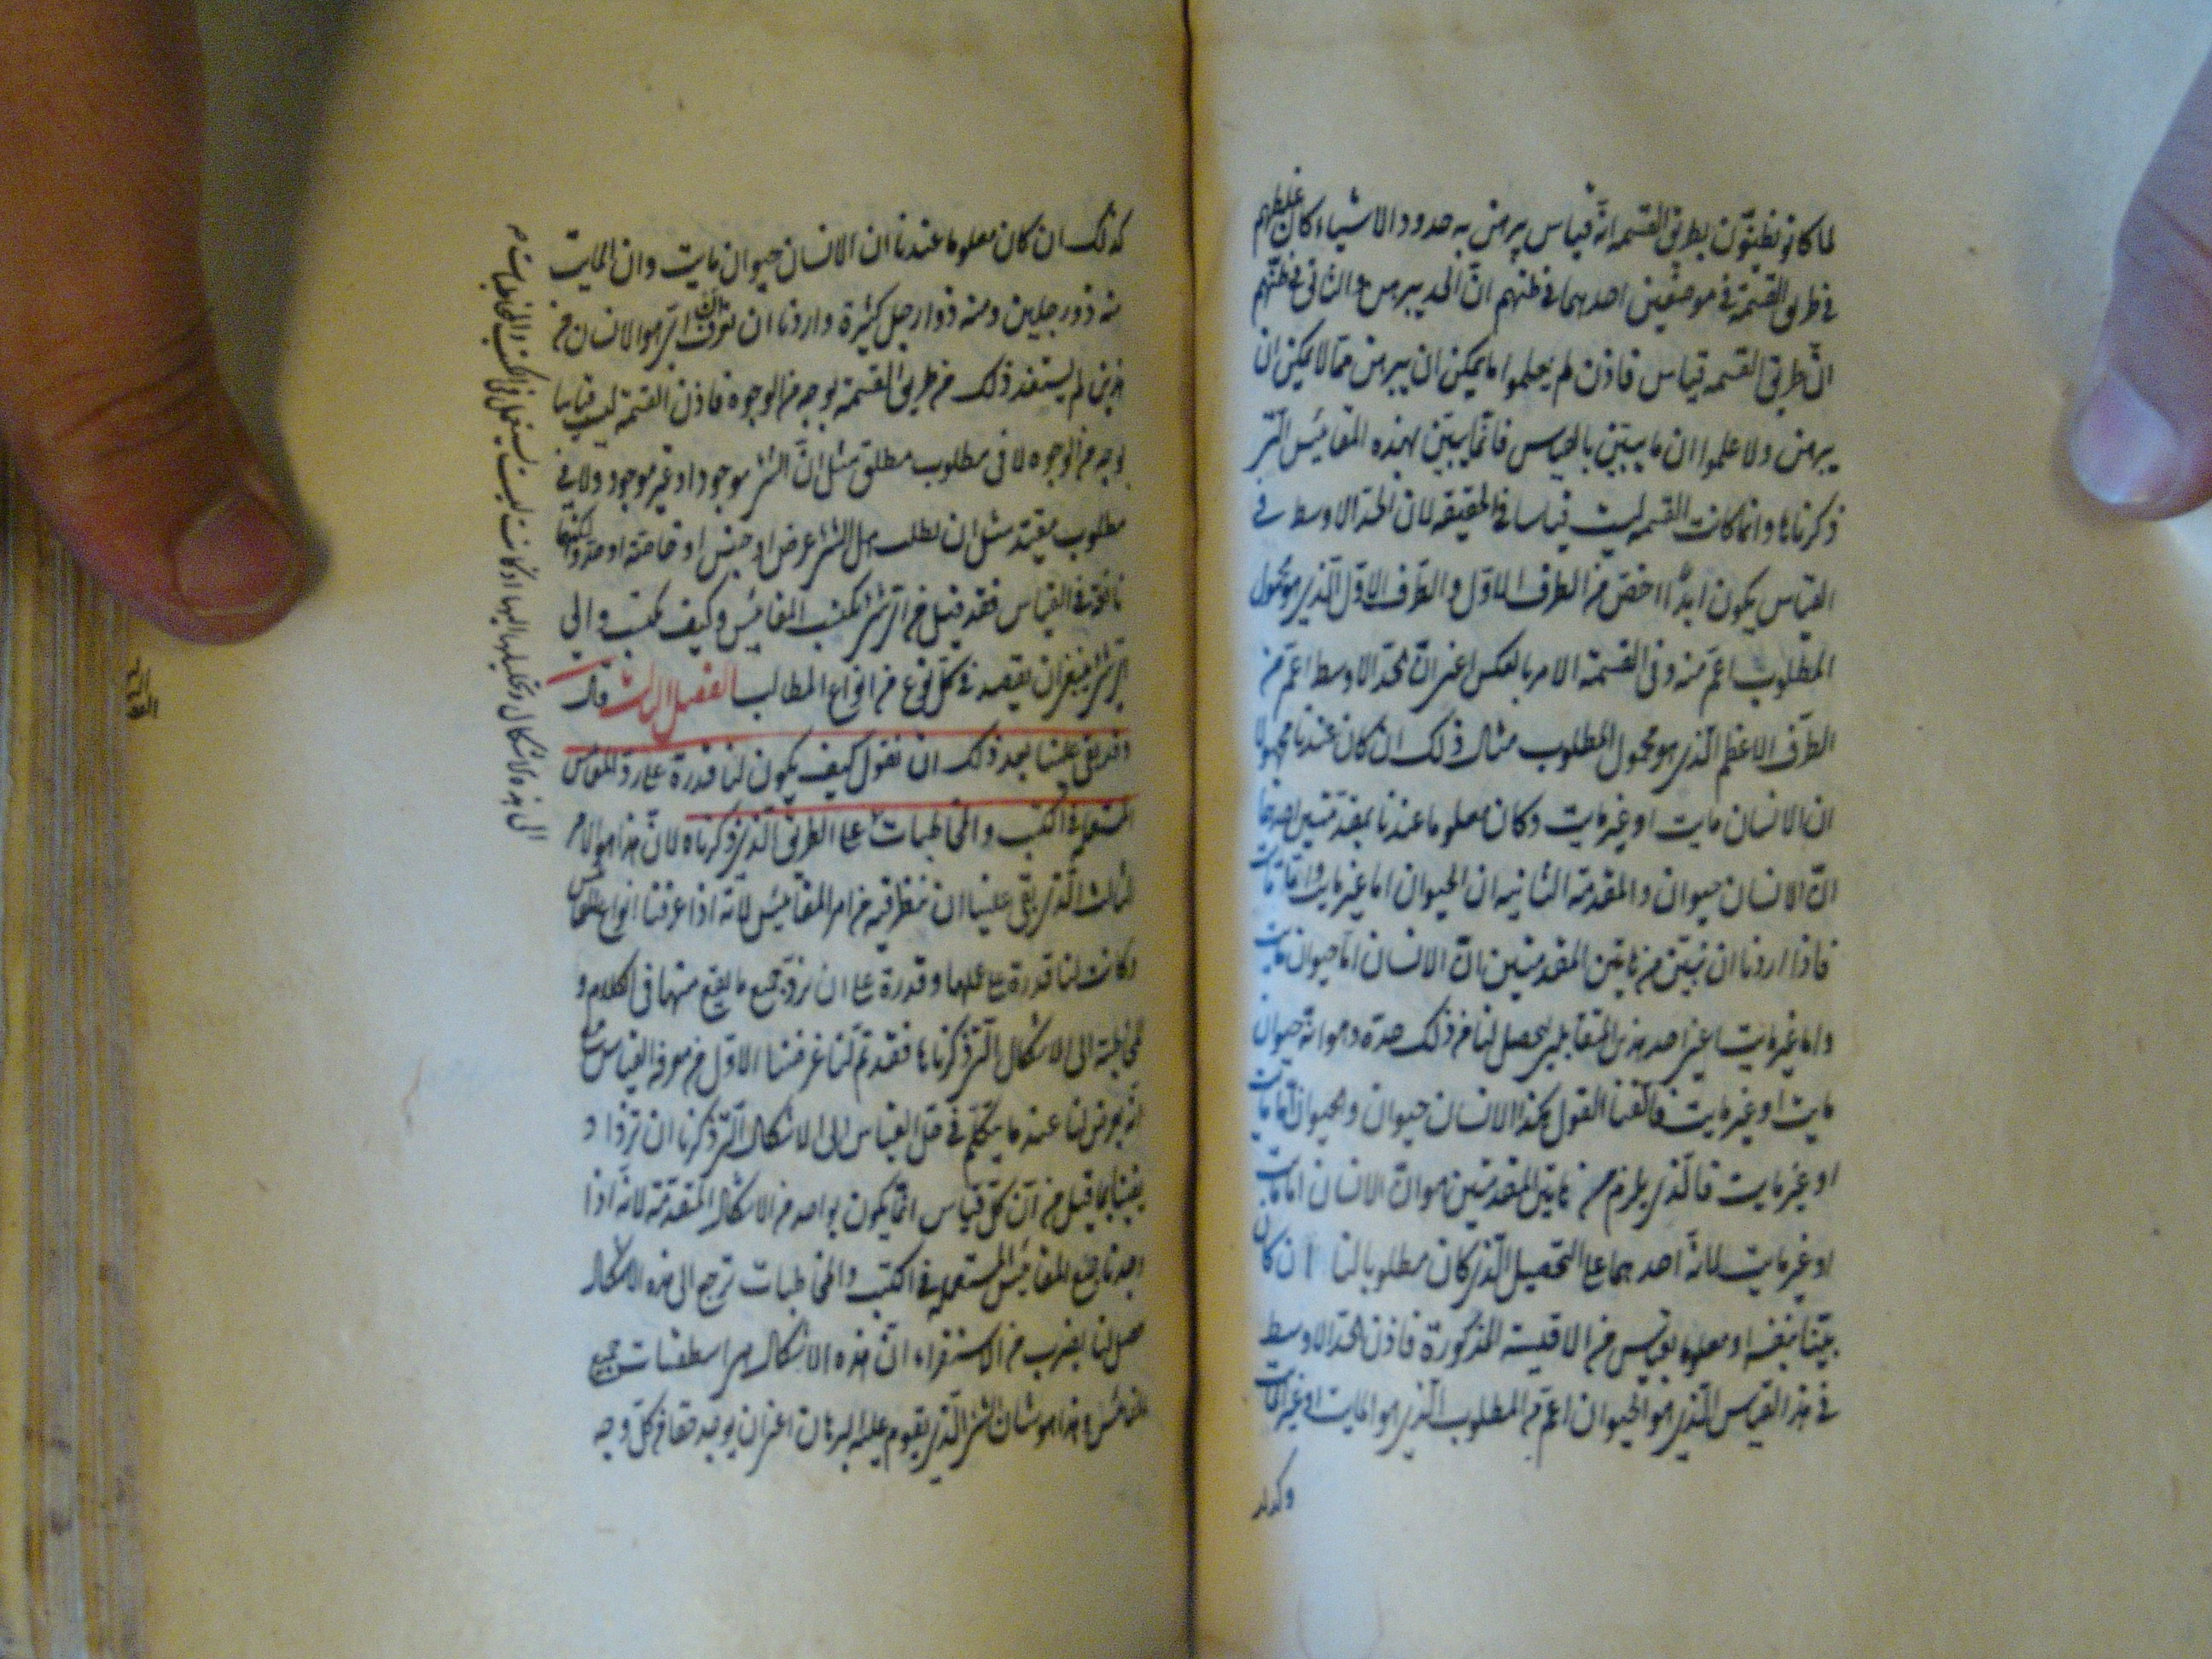 لما كانو يظنون بطريق القسمه انه قياس يبرهن به حدود الاشياء كان غلطهم
فى طريق القسمة فى موضعين احدهما فى ظنهم ان الحد يبرهن و الثانى فى ظنهم
ان طريق القسمه قياس فاذن لم يعلموا ما يمكن ان يبرهن مما لا يمكن ان
يبرهن ولا علموا ان ما يتبين بالقياس فانما يتبين بهذه المقائيس التى
ذكرناها وانما كانت القسمه ليست قياسا فى الحقيقه لان الحد الاوسط فى
القياس يكون ابدا اخص من الطرف الاول والطرف الاول الذى هو محمول
المطلوب اعم منه وفى القسمة الامر بالعكس اعنى ان الحد الاوسط اعم من
الطرف الاعظم الذى هو محمول المطلوب مثال ذلك ان كان عندنا مجهولا
ان الانسان مايت او غير مايت وكان معلوما عندنا بمقدمتين احدها
ان الانسان حيوان والمقدمة الثانيه ان الحيوان اما غير مايت واما مايت
فاذا اردنا ان نبين من هاتين المقدمتين ان الانسان اما حيوان مايت
واما غير مايت اعنى احد هذين المتقابلين ليحصل لنا من ذلك حده وهو انه حيوان
مايت او غير مايت فالفنا القول هكذا الانسان حيوان والحيوان اما مايت
او غير مايت فالذى يلزم من هاتين المقدمتين هو ان الانسان اما مايت
او غير مايت لا انه احدهما على التحصيل الذى كان مطلوبا لنا ان كان
بينا بنفسه او معلوما بقياس من الاقيسة المذكورة فاذن الحد الاوسط
فى هذا القياس الذى هو الحيوان اعم من المطلوب الذى هو المايت او غير المايت
وكذلك
كذلك ان كان معلوما عندنا ان الانسان حيوان مايت وان المايت
منه ذو رجلين ومنه ذو ارجل كثيرة واردنا ان نعرف اى هو الانسان من
هذين لم يستفد ذلك من طريق القسمة بوجه من الوجوه فاذن القسمة ليست قياسا
بوجه من الوجوه لا فى مطلوب مطلق مثل ان الشئ موجود او غير موجود ولا فى
مطلوب مقيد مثل ان نطلب هل الشئ عرض او جنس او خاصة او حد
القياس فقد قيل من اى شئ تكتسب المقائيس وكيف تكتسب والى
اى شئ ينبغى ان نقصد فى كل نوع من انواع المطالب الفصل الثالث قال
وقد بقى علينا بعد ذلك ان نقول كيف يكون لنا قدرة على رد المقائيس
المستعملة فى الكتب والمخاطبات على الطريق الذى ذكرناه لان هذا هو الامر
الثالث الذى بقى علينا ان ننظر فيه من امر المقائيس لانه اذا عرفنا انواع المقائيس
وكانت لنا قدرة على عملها وقدرة على ان نرد جميع ما يقع منها فى الكلام و
المخاطبة الى الاشكال التى ذكرناها فقد تم لنا غرضنا الاول من معرفة القياس مع
انه يعرض لنا عندما نتكلم فى حل القياس الى الاشكال التى ذكرنا ان نزداد
يقينا بما قيل من ان كل قياس انما يكون بواحد من الاشكال المتقدمة لانه اذا
وجدنا جميع المقائيس المستعملة فى الكتب والمخاطبات ترجع الى هذه الاشكال
حصل لنا بضرب من الاستقراء ان هذه الاشكال هى اسطقسات جميع
المقائيس وهذا هو شان الشئ الذى يقوم عليه البرهان اعنى ان يوجد حقا من كل وجه
الى هذه الاشكال وتحليلها اليها اذ كانت ليست تستعمل فى الكتب والمخاطبات